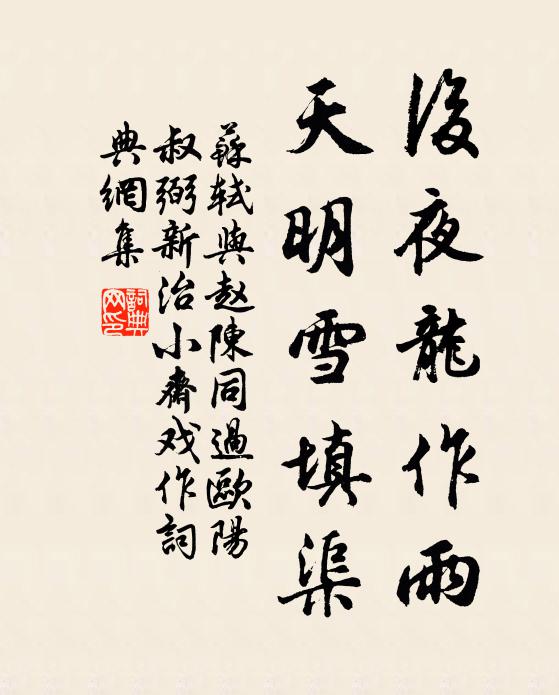 後夜龍作雨
天明雪填渠
蘇軾與赵陳同過歐陽
叔弼新治小齋戏作詞
典網集
詞典
网印